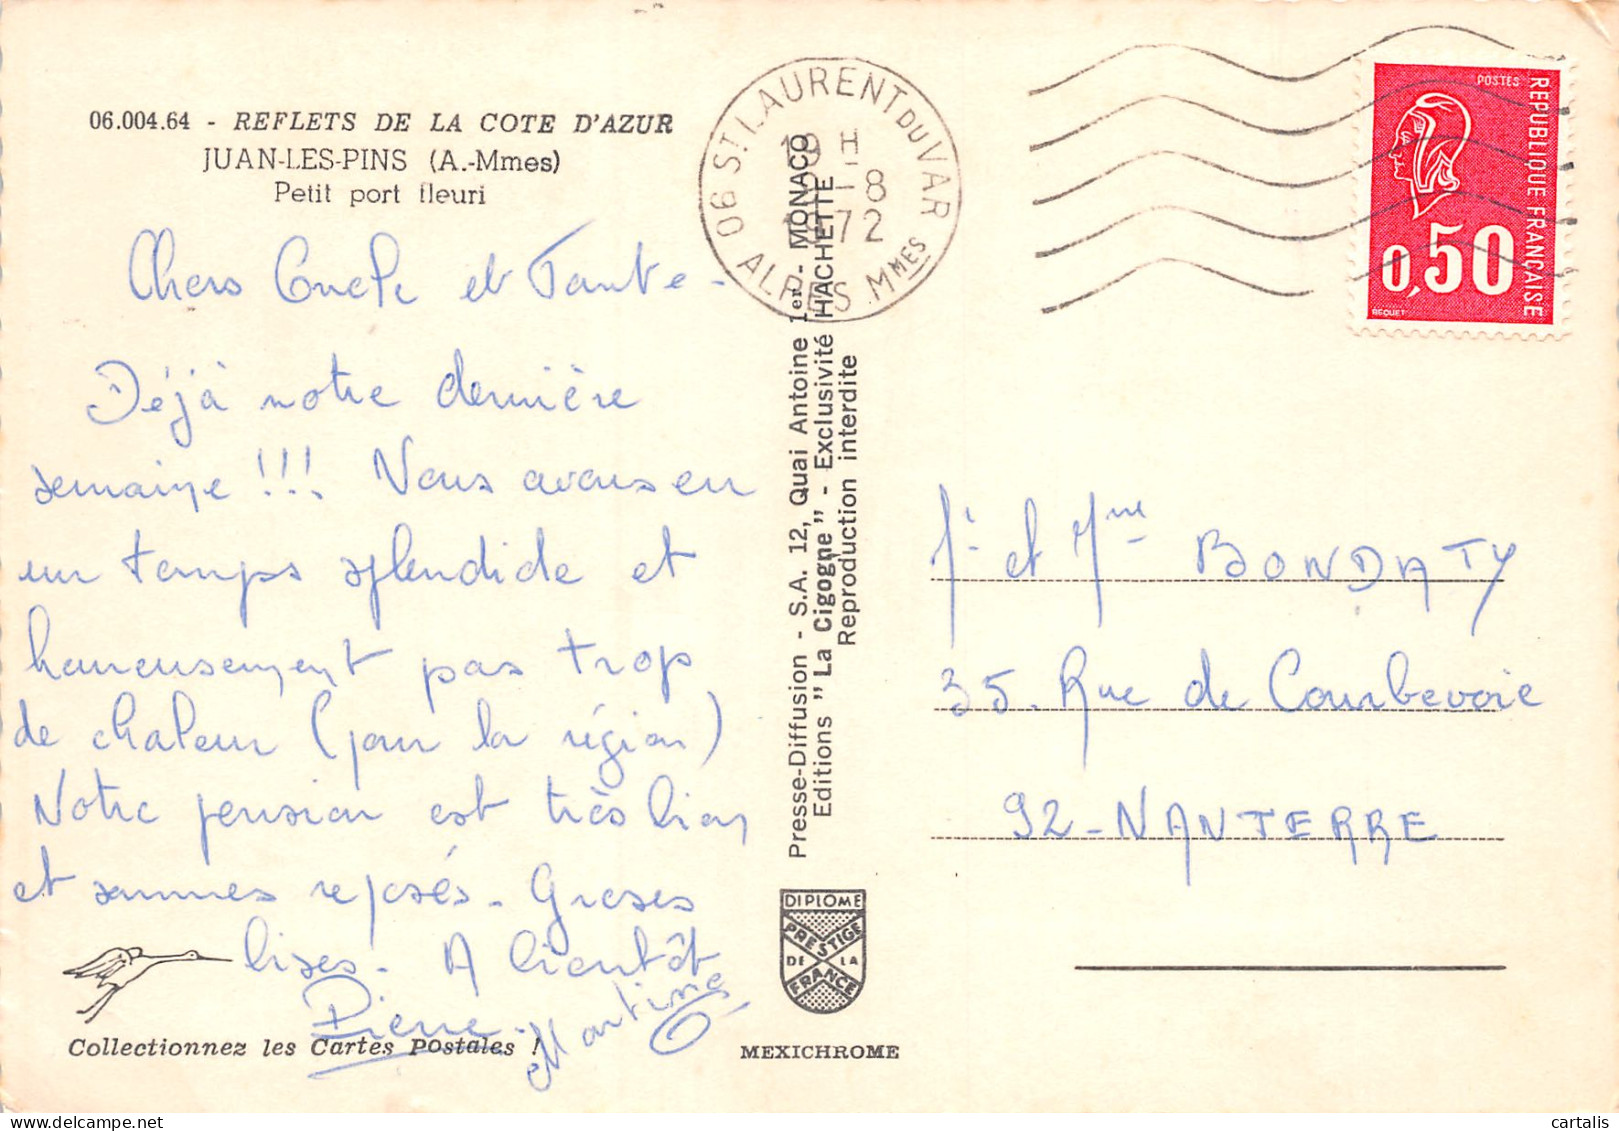 06.004.64 - REFLETS DE LA COTE D'AZUR
JUAN-LES-PINS (A.-Mmes)
Petit port fleuri
Chers Oncle et Tante -
Déjà notre dernière
semaine !!! Nous avons eu
un temps splendide et
heureusement pas trop
de chaleur (pour la région)
Notre pension est très bien
et sommes reposés - Grosses
bises - A bientôt
Pierre - Martine
Collectionnez les Cartes Postales !
Presse-Diffusion - S.A. 12, Quai Antoine 1er - MONACO
Editions "La Cigogne" - Exclusivité HACHETTE
Reproduction interdite
DIPLOME
PRESTIGE
DE LA
FRANCE
MEXICHROME
06 ST LAURENT DU VAR
19 H
-8
1972
ALPES MMES
POSTES
REPUBLIQUE FRANÇAISE
0,50
BEQUET
Mr et Mme BONDATY
35. Rue de Courbevoie
92 - NANTERRE
cartalis